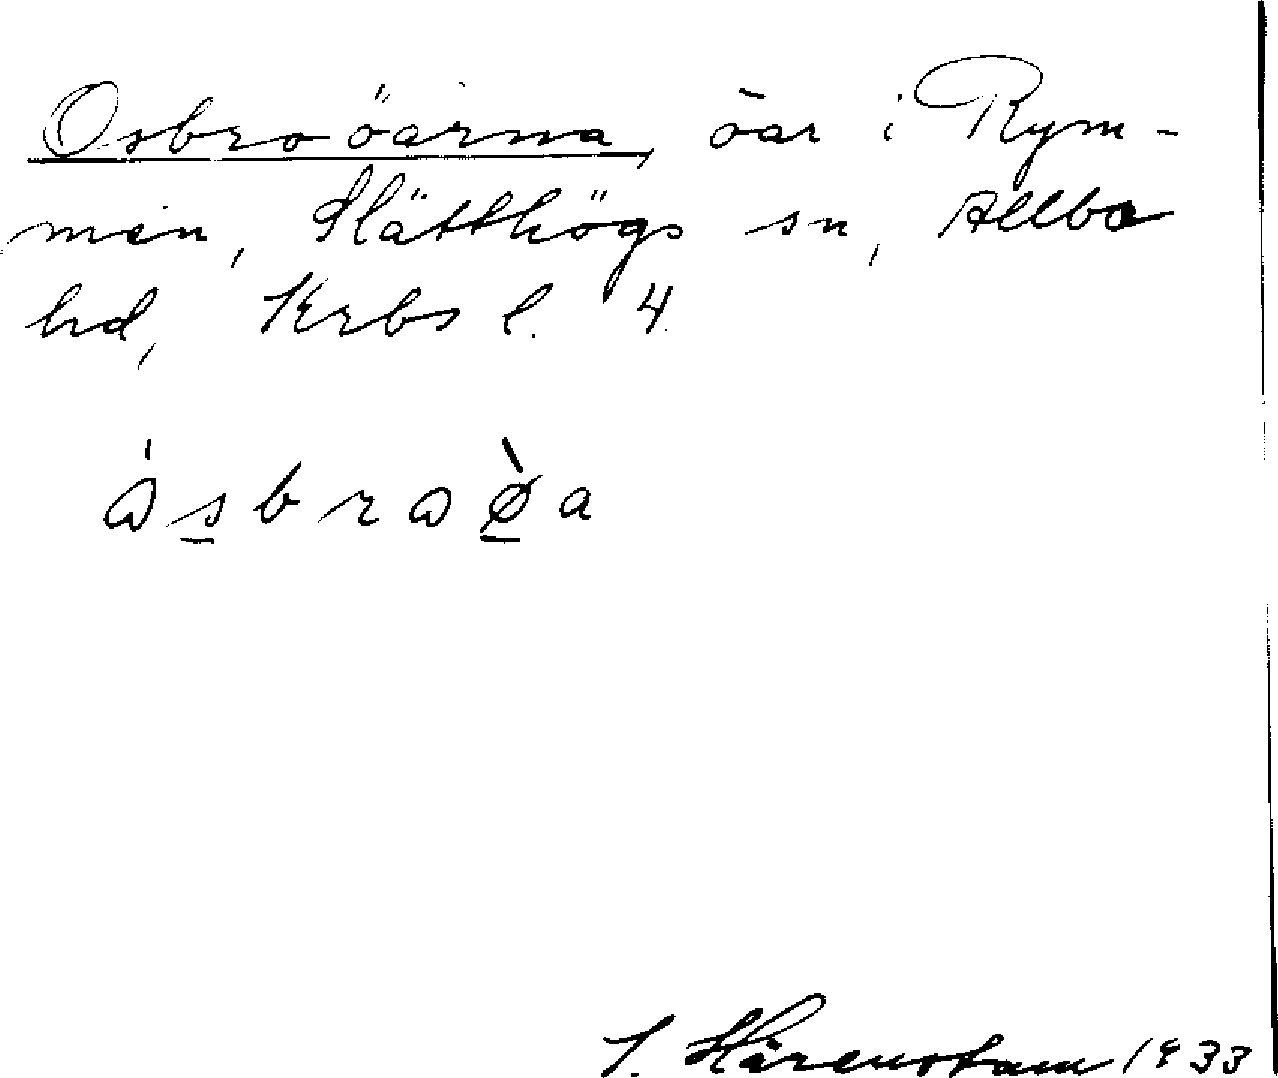 Osbroöarna, öar i Rym-
men, Slätthögs sn, Allbo
hd, Krbs l. 4.
ɷ́sbrɷø̀a
S. Härenstam 1933